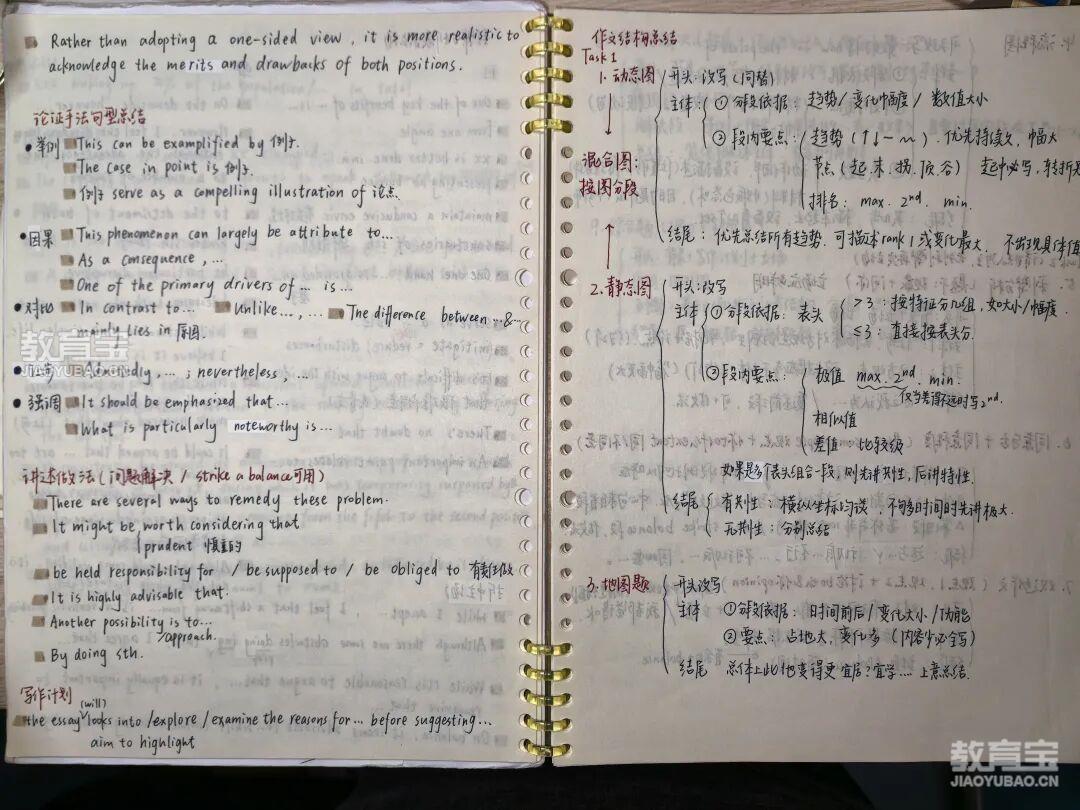 Rather than adopting a one-sided view, it is more realistic to
acknowledge the merits and drawbacks of both positions.
论证手法句型总结
举例 This can be examplified by 例子.
The case in point is 例子.
例子 serve as a compelling illustration of 论点.
因果 This phenomenon can largely be attribute to...
As a consequence, ...
One of the primary drivers of ... is ...
对比 In contrast to... Unlike..., ... The difference between ...&...
mainly lies in 原因.
Admittedly, ... ; nevertheless, ...
强调 It should be emphasized that...
What is particularly noteworthy is ...
讲述做法(问题解决 / strike a balance可用)
There are several ways to remedy these problem.
It might be worth considering that
prudent 慎重的
be held responsibility for / be supposed to / be obliged to 有责任做
It is highly advisable that.
Another possibility is to...
/approach.
By doing sth.
写作计划
(will)
the essay looks into /explore / examine the reasons for... before suggesting...
aim to highlight
教育宝
JIAOYUBAO.CN
作文结构总结
Task 1
1. 动态图 开头:改写(同替)
主体: ① 分段依据: 趋势/变化幅度/数值大小
② 段内要点: 趋势 (↑↓-~) 优先持续久, 幅大
节点 (起.末.拐.顶.谷) 起中必写,转折
排名: max. 2nd. min.
结尾: 优先总结所有趋势. 可描述rank 1 或变化最大. 不出现具体值
混合图:
按图分段
2. 静态图 开头:改写
主体 ① 分段依据: 表头 >3: 按特征分几组, 如大小/幅度.
≤3: 直接按表头分.
② 段内要点: 极值 max. 2nd. min.
仅当差得不远时写2nd.
相似值
差值 比较级
如果是多个表头组合一段, 则先讲共性, 后讲特性.
结尾 有共性: 横纵坐标均谈. 不够时间时先讲极大.
无共性: 分别总结
3. 地图题 开头改写
主体 ①分段依据: 时间前后/变化大小/功能
②要点: 占地大, 变化多 (内容少必写)
结尾 总体上此地变得更宜居?宜学.... 上意总结.
教育宝
JIAOYUBAO.CN